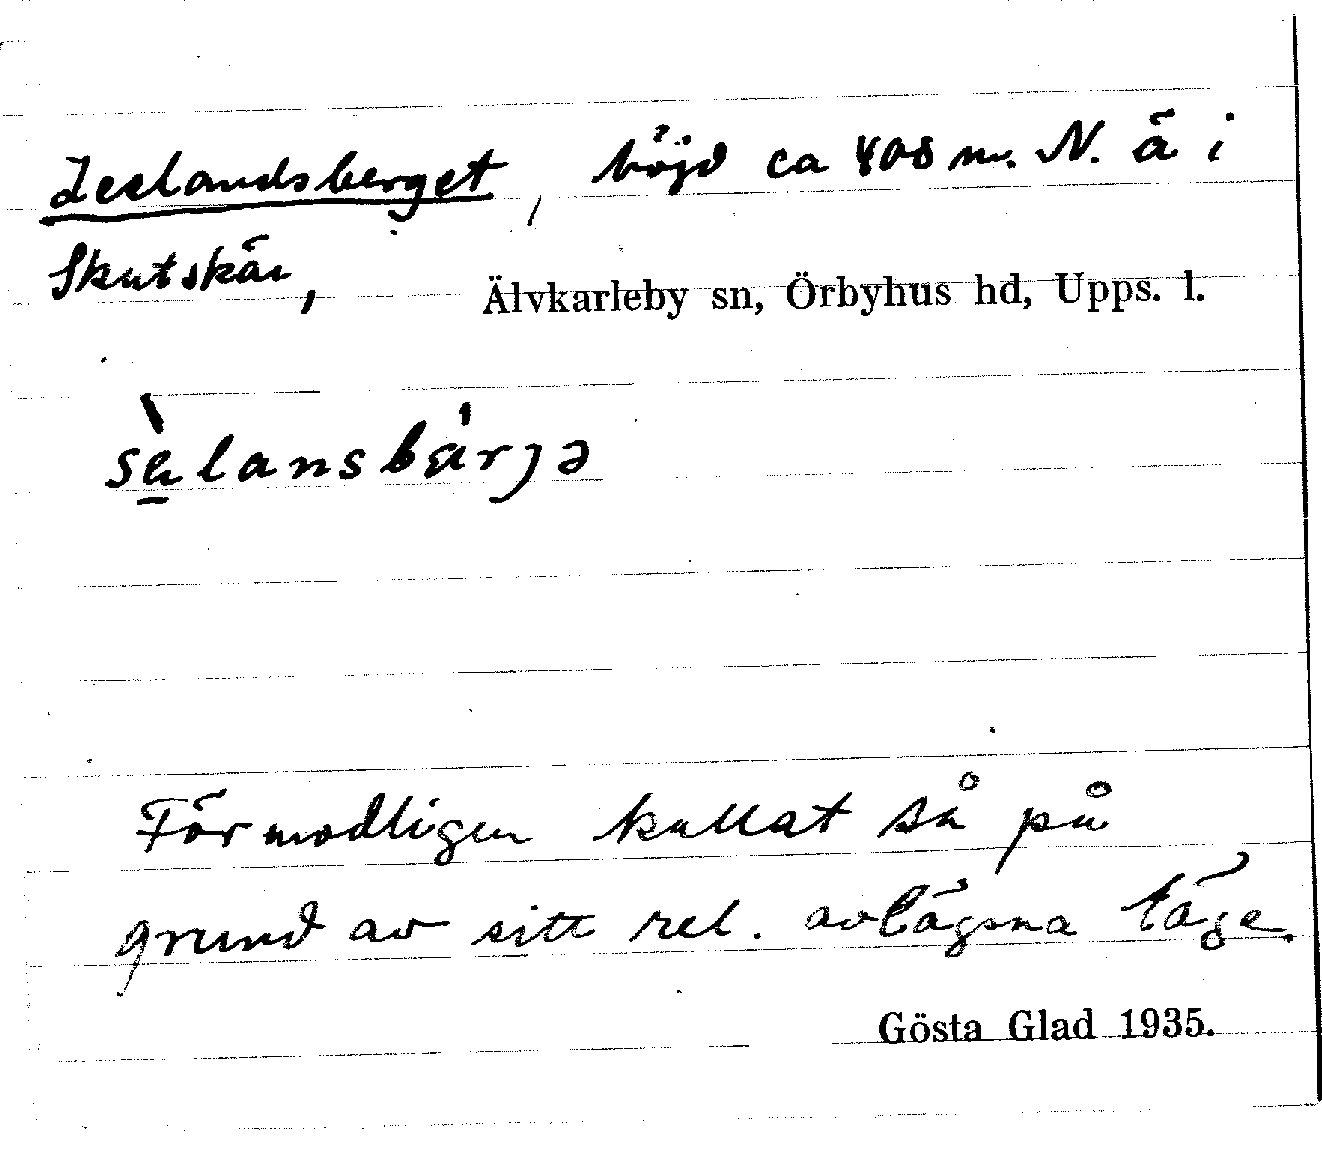 Zeelandsberget, höjd ca 400 m. N. ä i
Skutskär, Älvkarleby sn, Örbyhus hd, Upps. l.
sè̱lansbárjə
Förmodligen kallat så på
grund av sitt rel. avlägsna läge.
Gösta Glad 1935.